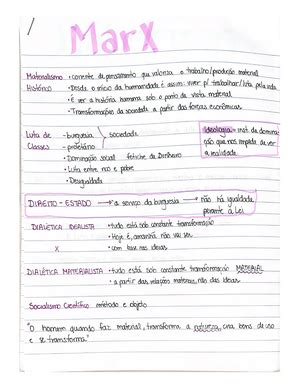 Marx
Materialismo • corrente de pensamento que valoriza o trabalho/produção material
Histórico • Desde o início da humanidade é assim: viver p/ trabalhar/luta pela vida
• É ver a história humana sob o ponto de vista material
• Transformações da sociedade a partir das forças econômicas
Luta de - burguesia } sociedade
Classes - proletário
- Dominação social fetiche do Dinheiro
- Luta entre rico e pobre
- Desigualdade
Ideologia - inst. de domina
ção que nos impede de ver
a realidade
DIREITO - ESTADO → a serviço da burguesia → não há igualdade
perante a Lei
DIALÉTICA IDEALISTA • tudo está sob constante transformação
• Hoje é, amanhã não vai ser
X • com base nas ideias
DIALÉTICA MATERIALISTA • tudo está sob constante transformação MATERIAL
• a partir das relações materiais, não das ideias
Socialismo Científico método e objeto
"O homem quando faz material, transforma a natureza, cria bens de uso
e se transforma."